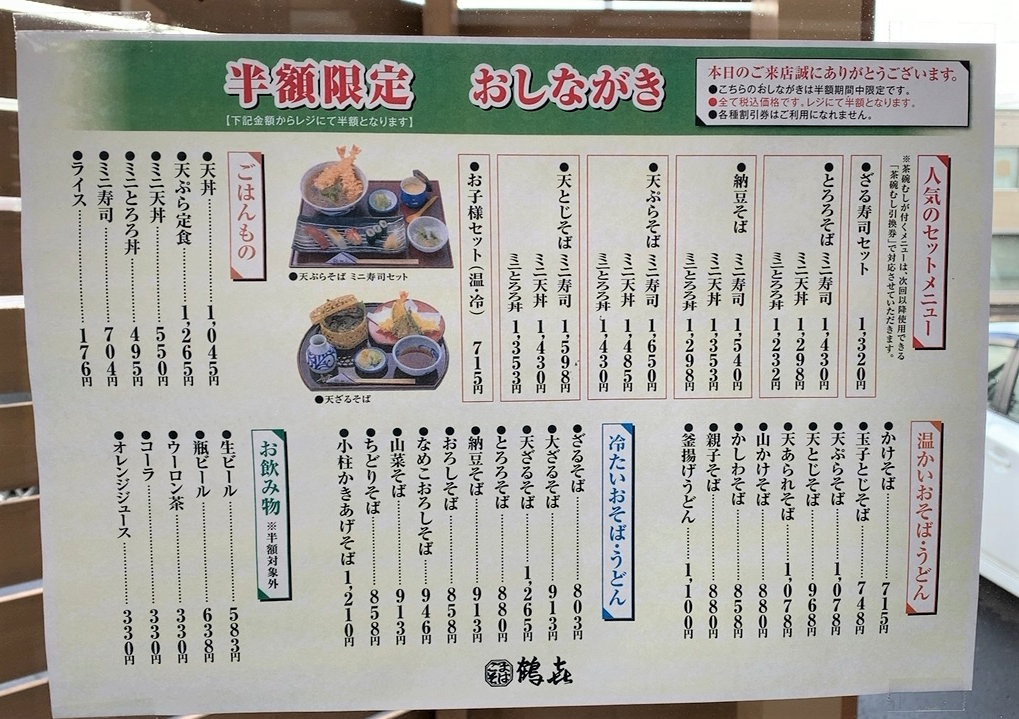 半額限定 おしながき
【下記金額からレジにて半額となります】
本日のご来店誠にありがとうございます。
●こちらのおしながきは半額期間中限定です。
●全て税込価格です。レジにて半額となります。
●各種割引券はご利用になれません。
人気のセットメニュー
※茶碗むしが付くメニューは、次回以降使用できる
「茶碗むし引換券」で対応させていただきます。
●ざる寿司セット 1,320円
●とろろそば ミニ寿司 1,430円
ミニ天丼 1,298円
ミニとろろ丼 1,232円
●納豆そば ミニ寿司 1,540円
ミニ天丼 1,353円
ミニとろろ丼 1,298円
●天ぷらそば ミニ寿司 1,650円
ミニ天丼 1,485円
ミニとろろ丼 1,430円
●天とじそば ミニ寿司 1,598円
ミニ天丼 1,430円
ミニとろ丼 1,353円
●お子様セット(温・冷) 715円
●天ぷらそば ミニ寿司セット
●天ざるそば
ごはんもの
●天丼 1,045円
●天ぷら定食 1,265円
●ミニ天丼 550円
●ミニとろろ丼 495円
●ミニ寿司 704円
●ライス 176円
温かいおそば・うどん
●かけそば 715円
●玉子とじそば 748円
●天ぷらそば 1,078円
●天とじそば 968円
●天あられそば 1,078円
●山かけそば 880円
●かしわそば 858円
●親子そば 880円
●釜揚げうどん 1,100円
冷たいおそば・うどん
●ざるそば 803円
●大ざるそば 913円
●天ざるそば 1,265円
●とろろそば 880円
●納豆そば 913円
●おろしそば 858円
●なめこおろしそば 946円
●山菜そば 913円
●ちどりそば 858円
●小柱かきあげそば 1,210円
お飲み物 ※半額対象外
●生ビール 583円
●瓶ビール 638円
●ウーロン茶 330円
●コーラ 330円
●オレンジジュース 330円
ごまそば 鶴㐂